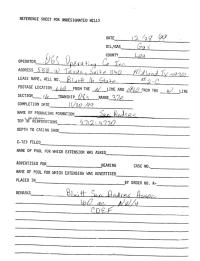 REFERENCE SHEET FOR UNDESIGNATED WELLS
DATE 12/28/99
OIL/GAS Gas
COUNTY Lea
OPERATOR Operating Co Inc
ADDRESS 550 W Texas, Suite Midland Tx
LEASE NAME, WELL NO. State
FOOTAGE LOCATION 660 FROM THE N LINE AND FROM THE W LINE
SECTION TOWNSHIP RANGE 37e
COMPLETION DATE 11/20/99
NAME OF PRODUCING FORMATION San Andres
TOP OF PERFORATIONS
DEPTH TO CASING SHOE
C-123 FILED
NAME OF POOL FOR WHICH EXTENSION WAS ASKED
ADVERTISED FOR HEARING CASE NO.
NAME OF POOL FOR WHICH EXTENSION WAS ADVERTISED
PLACED IN BY ORDER NO. R-
REMARKS San Andres Assoc
160 ac NW/4
CDEF